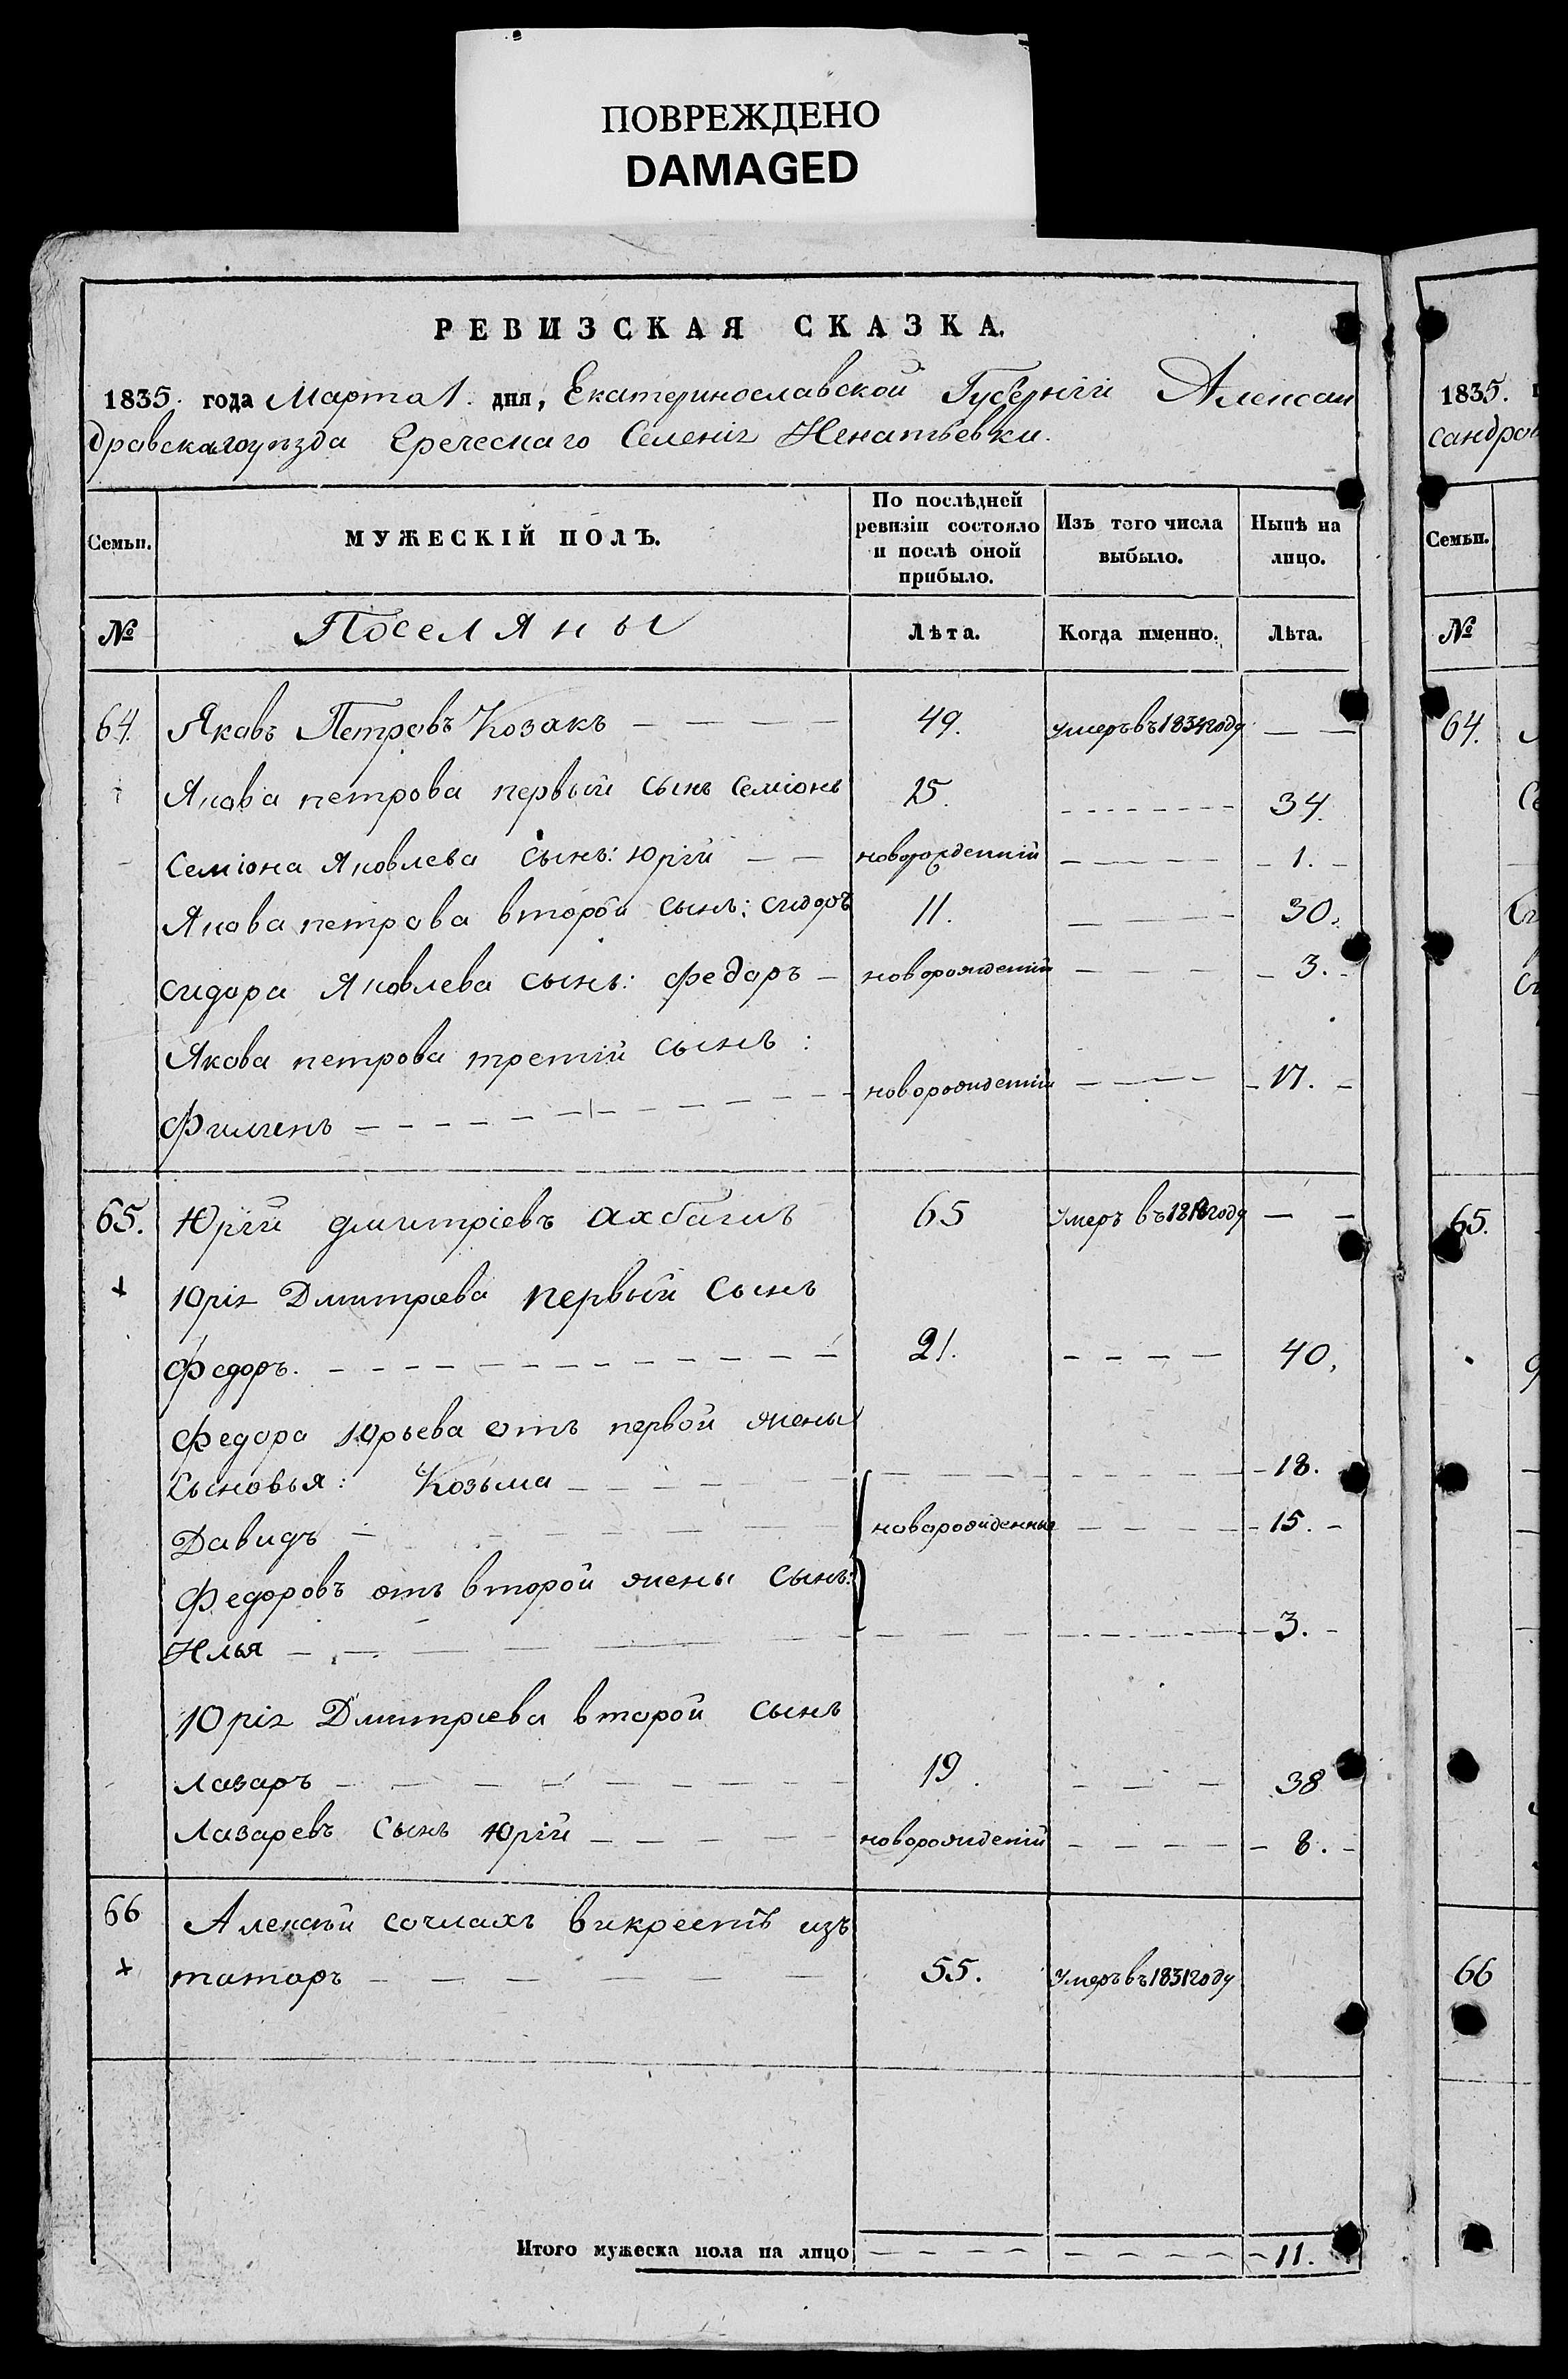 ПОВРЕЖДЕНО
DAMAGED
РЕВИЗСКАЯ СКАЗКА.
1835. года Марта 1. дня, Екатеринославской Губерніи Алексан
дравскагоуѣзда Греческаго Селенія Игнатьевки.
Семьи. МУЖЕСКІЙ ПОЛЪ. По послѣдней ревизіи состояло и послѣ оной прибыло. Изъ того числа выбыло. Нынѣ на лицо.
№ Поселяны Лѣта. Когда именно. Лѣта.
64. Яковъ Петровъ Козакъ — — — — 49. умеръ въ 1834 году — —
Якова петрова первый сынъ Семіонъ 15. - - - - - - - 34.
Семіона Яковлева сынъ: Юрій — — новорожденній - - - - - - 1. -
Якова петрова второй сынъ: сидоръ 11. — — — - 30.
сидора Яковлева сынъ: федоръ — новорожденій - — — - - 3. -
Якова петрова третій сынъ:
Филипъ — - - - - - - - - - новорожденій - - - - - 17. -
65. Юрій дмитріевъ 65 Умеръ въ 1818 году — —
+ Юрія Дмитріева первый Сынъ
федоръ. - - - - - - - - - - - 21. - - - - 40.
федора Юрьева отъ первой жены
Сыновья: Козьма - - - - - - 18.
Давидъ — - - - - новорожденные - - - - 15. -
Федоровъ отъ второй жены Сынъ:
Илья - - - - - - - - 3. -
Юрія Дмитріева второй сынъ
Лазаръ - - - - - - - - 19. - - - 38
Лазаревъ Сынъ Юрій - - - - - новорожденій - - - - - 8. -
66 Алексѣй викрестъ изъ
+ татаръ - - - - - - - 55. Умеръ въ 1831 году
Итого мужеска пола на лицо - - - - - - - - - - 11.
1835.
сандров
Семьи.
№
64.
65.
66